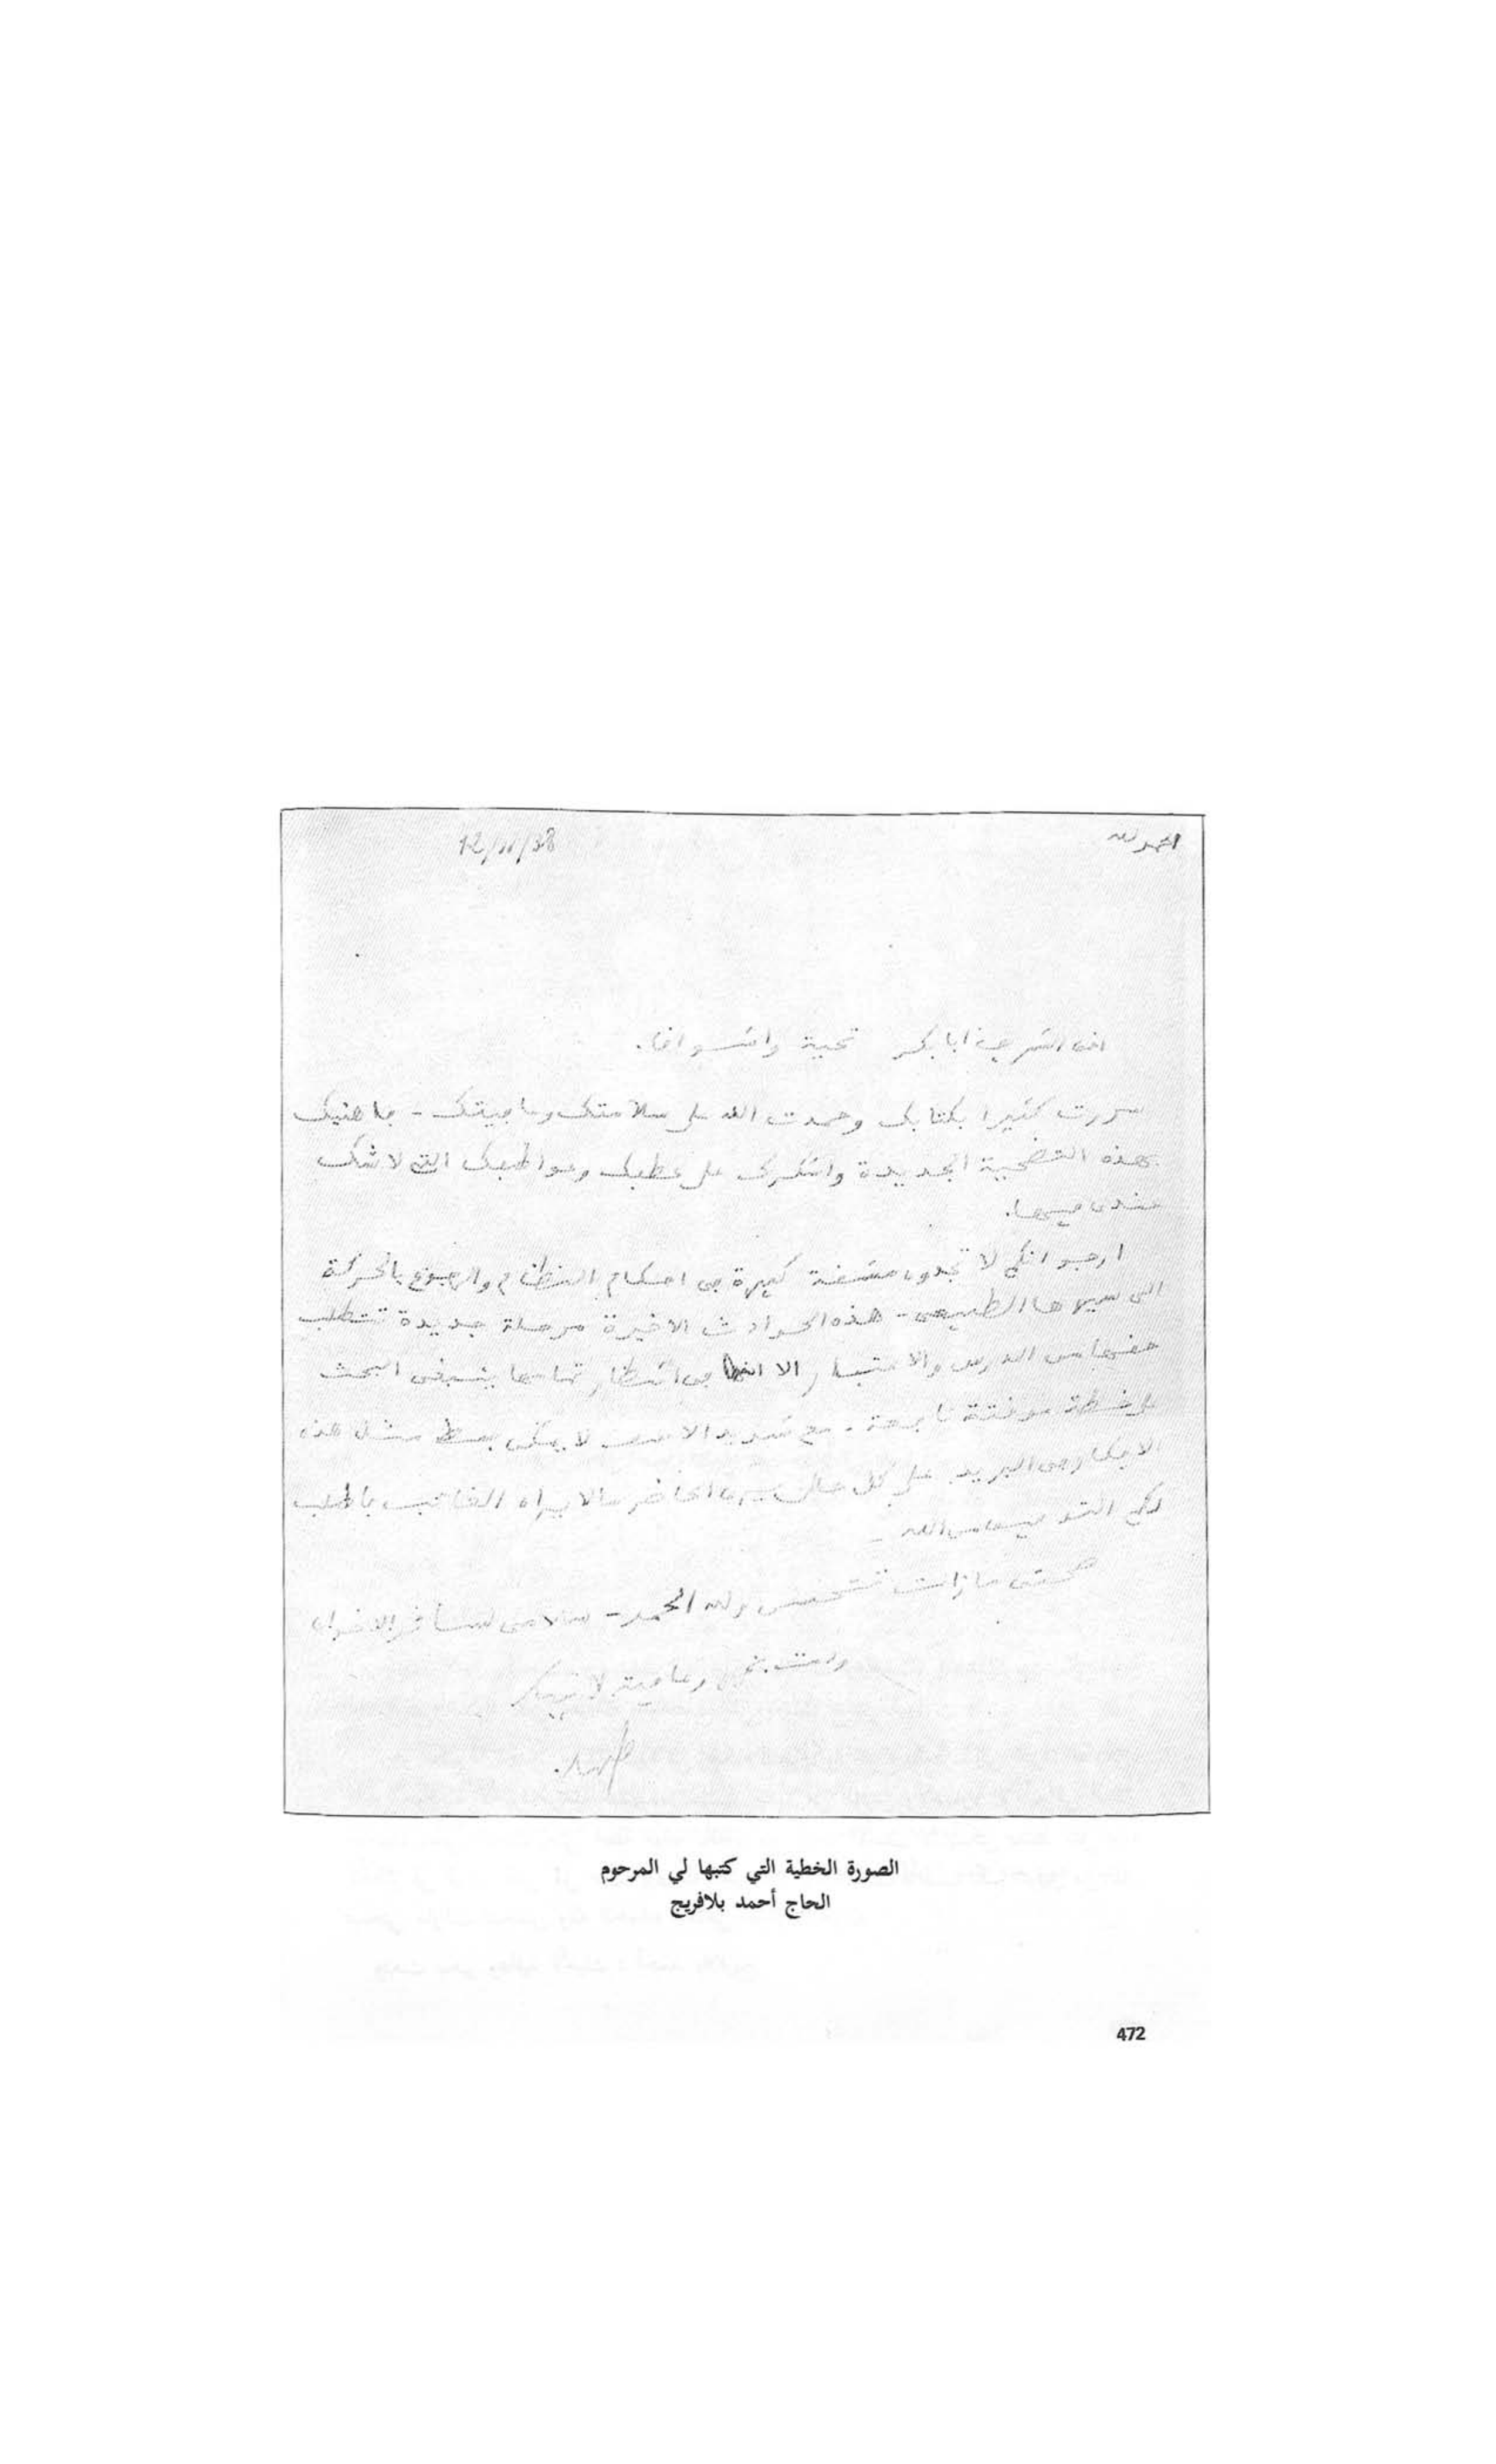 الحمد لله
12/11/38
اخى الشريف ابا بكر تحية واشواقا.
سررت كثيرا بكتابك وحمدت الله على سلامتك وعافيتك - فاهنيك
بهذه التضحية الجديدة واشكرك على عطفك وعواطفك التى لا شك
عندى فيها.
ارجو انكم لا تجدون مشقة كبيرة فى احكام النظام والرجوع بالحركة
الى سيرها الطبيعى - هذه الحوادث الاخيرة مرحلة جديدة تتطلب
حقها من الدرس والاعتبار الا انها فى انتظار تمامها ينبغى البحث
على خطة موقتة ناجعة - مع شديد الاسف لا يمكن بسط مثل هذه
الافكار فى البريد على كل حال يرى الحاضر مالا يراه الغائب فاطلب
لكم التوفيق من الله -
صحتى مازالت تتحسن ولله الحمد - سلامى لسائر الاخوان
ودمت بخير وعافية لاخيك
الصورة الخطية التي كتبها لي المرحوم
الحاج أحمد بلافريج
472